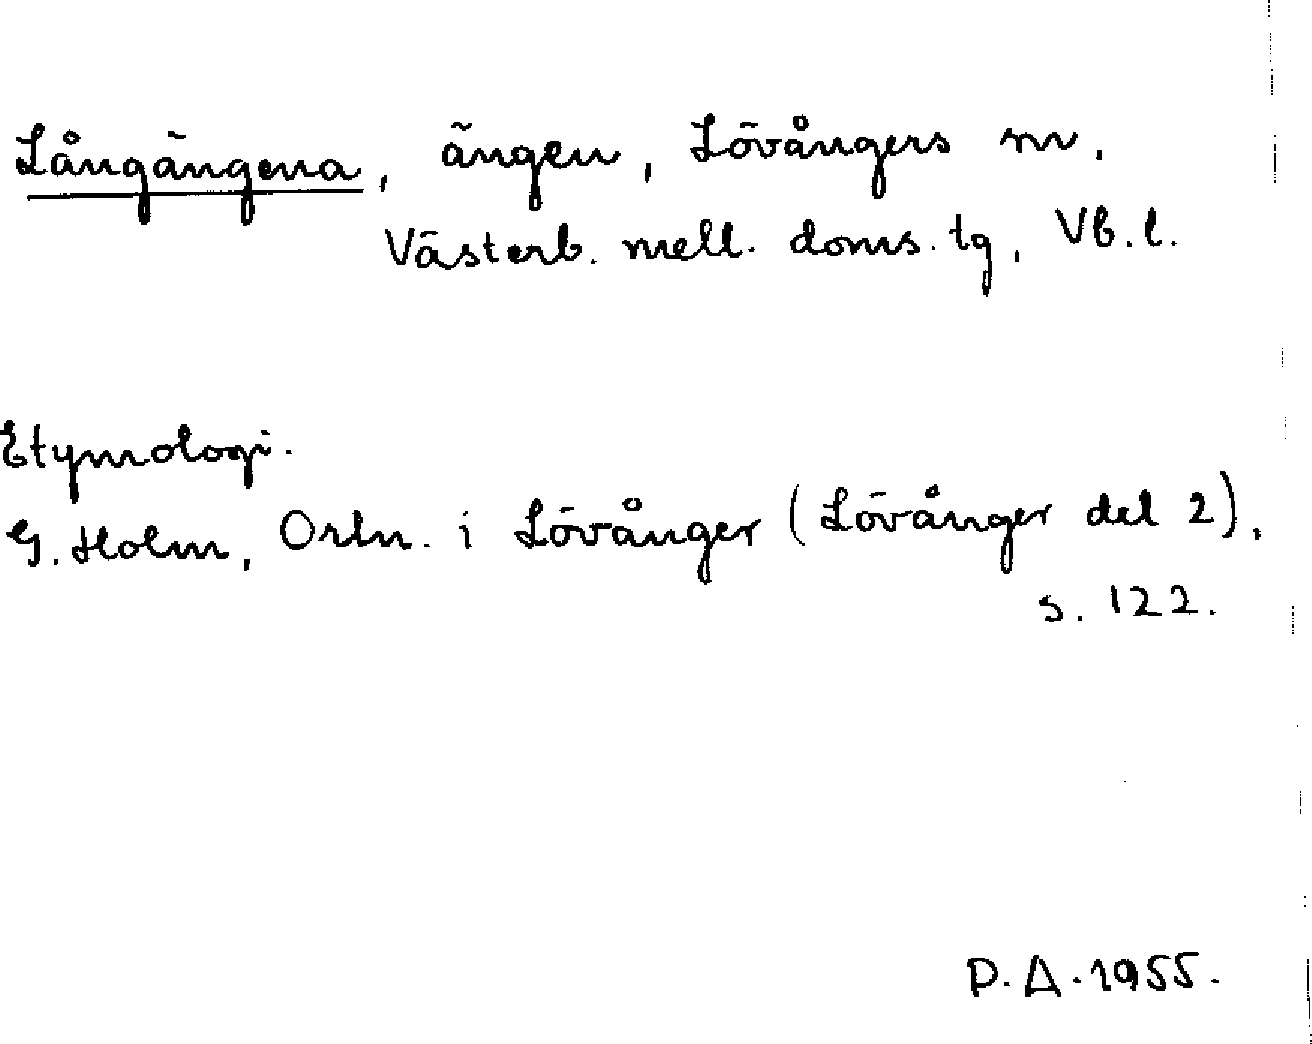 Långängena, ängen, Lövångers sn,
Västerb. mell. doms. tg, Vb. l.
Etymologi.
G. Holm, Ortn. i Lövånger (Lövånger del 2),
s. 122.
P.A. 1955.